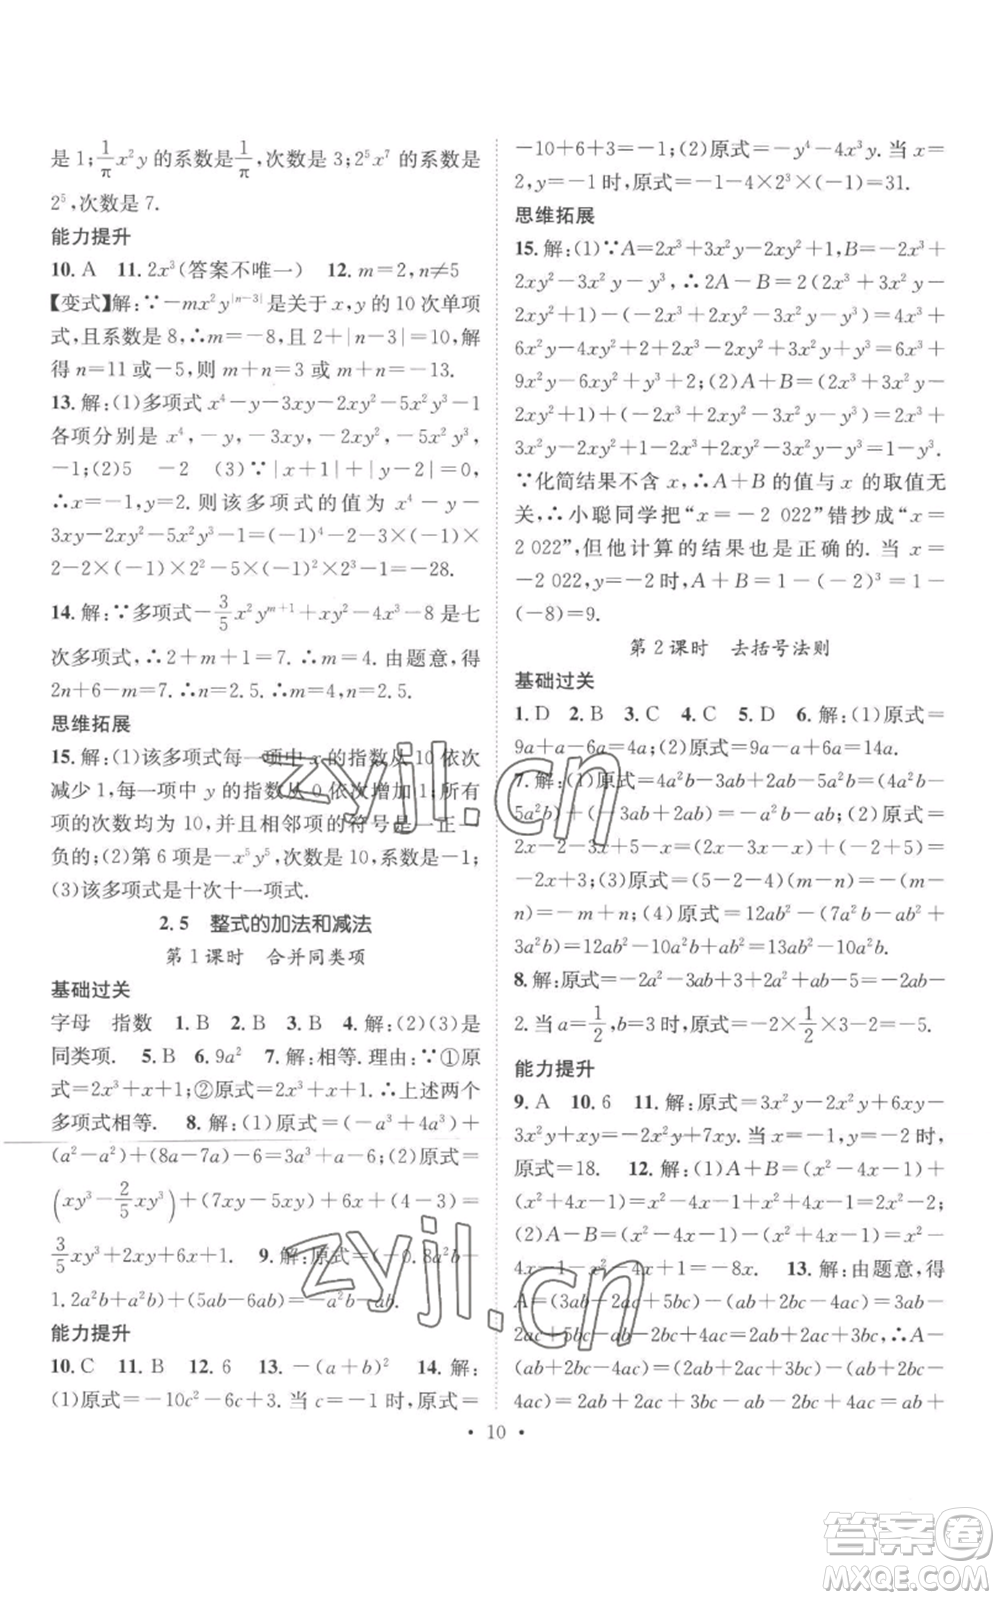 是 1;1/π x²y 的系数是 1/π,次数是 3;2⁵x⁷ 的系数是
2⁵,次数是 7.
能力提升
10. A 11. 2x³(答案不唯一) 12. m=2,n≠5
【变式】解:∵-mx²y^|n-3| 是关于 x,y 的 10 次单项
式,且系数是 8,∴m=-8,且 2+|n-3|=10,解
得 n=11 或-5,则 m+n=3 或 m+n=-13.
13. 解:(1)多项式 x⁴-y-3xy-2xy²-5x²y³-1
各项分别是 x⁴,-y,-3xy,-2xy²,-5x²y³,
-1;(2)5 -2 (3)∵|x+1|+|y-2|=0,
∴x=-1,y=2. 则该多项式的值为 x⁴-y-
3xy-2xy²-5x²y³-1=(-1)⁴-2-3×(-1)×
2-2×(-1)×2²-5×(-1)²×2³-1=-28.
14. 解:∵多项式-3/5x²y^(m+1)+xy²-4x³-8 是七
次多项式,∴2+m+1=7. ∴m=4. 由题意,得
2n+6-m=7. ∴n=2.5. ∴m=4,n=2.5.
思维拓展
15. 解:(1)该多项式每一项中 x 的指数从 10 依次
减少 1,每一项中 y 的指数从 0 依次增加 1,所有
项的次数均为 10,并且相邻项的符号是一正一
负的;(2)第 6 项是-x⁵y⁵,次数是 10,系数是-1;
(3)该多项式是十次十一项式.
2.5 整式的加法和减法
第 1 课时 合并同类项
基础过关
字母 指数 1. B 2. B 3. B 4. 解:(2)(3)是
同类项. 5. B 6. 9a² 7. 解:相等. 理由:∵①原
式=2x³+x+x²;②原式=2x³+x+x²,∴上述两个
多项式相等. 8. 解:(1)原式=(-a³+4a³)+
(a²-a²)+(8a-7a)-6=3a³+a-6;(2)原式=
(xy³-2/5xy³)+(7xy-5xy)+6x+(4-3)=
3/5xy³+2xy+6x+1. 9. 解:原式=(-0.8a²b-
1.2a²b)+ab+(5ab-6ab)=-a²b-ab.
能力提升
10. C 11. B 12. 6 13. -(a+b)² 14. 解:
(1)原式=-10c²-6c+3. 当 c=-1 时,原式=
-10+6+3=-1;(2)原式=-y⁴-4x³y. 当 x=
2,y=-1 时,原式=-1-4×2³×(-1)=31.
思维拓展
15. 解:(1)∵A=2x³+3x²y-2xy²+1,B=-2x³+
2xy²-3x²y-y³,∴2A-B=2(2x³+3x²y-
2xy²+1)-(-2x³+2xy²-3x²y-y³)=4x³+
6x²y-4xy²+2+2x³-2xy²+3x²y+y³=6x³+
9x²y-6xy²+y³+2;(2)A+B=(2x³+3x²y-
2xy²+1)+(-2x³+2xy²-3x²y-y³)=2x³+
3x²y-2xy²+1-2x³+2xy²-3x²y-y³=1-y³.
∵化简结果不含 x,∴A+B 的值与 x 的取值无
关,∴小聪同学把“x=-2 022”错抄成“x=
2 022”,但他计算的结果也是正确的. 当 x=
-2 022,y=-2 时,A+B=1-(-2)³=1-
(-8)=9.
第 2 课时 去括号法则
基础过关
1. D 2. B 3. C 4. C 5. D 6. 解:(1)原式=
9a+a-6a=4a;(2)原式=9a-a+6a=14a.
7. 解:(1)原式=4a²b-3ab+2ab-5a²b=(4a²b-
5a²b)+(-3ab+2ab)=-a²b-ab;(2)原式=
2x-2-3x+5=(2x-3x)+(5-2)=
-x+3;(3)原式=(5-2-4)(m-n)=-(m-
n)=-m+n;(4)原式=12ab²-6a-12a²b+
6a=12ab²-12a²b.
8. 解:原式=-2a²-3ab+3+2a²+ab-5=-2ab-
2. 当 a=1/2,b=3 时,原式=-2×1/2×3-2=-5.
能力提升
9. A 10. 6 11. 解:原式=3x²y-2x²y+6xy-
3x²y+xy=-2x²y+7xy. 当 x=-1,y=-2 时,
原式=18. 12. 解:(1)A+B=(x²-4x-1)+
(x²+4x-1)=x²-4x-1+x²+4x-1=2x²-2;
(2)A-B=(x²-4x-1)-(x²+4x-1)=x²-
4x-1-x²-4x+1=-8x. 13. 解:由题意,得
A=(3ab-2ac+5bc)-(2ab+2bc-4ac)=3ab-
2ac+5bc-2ab-2bc+4ac=ab+2ac+3bc,∴A-
(ab+2bc-4ac)=(ab+2ac+3bc)-(ab+2bc-
4ac)=ab+2ac+3bc-ab-2bc+4ac=ab+
• 10 •
zyjl.cn
zyjl.cn
答案圈
MXQE.COM